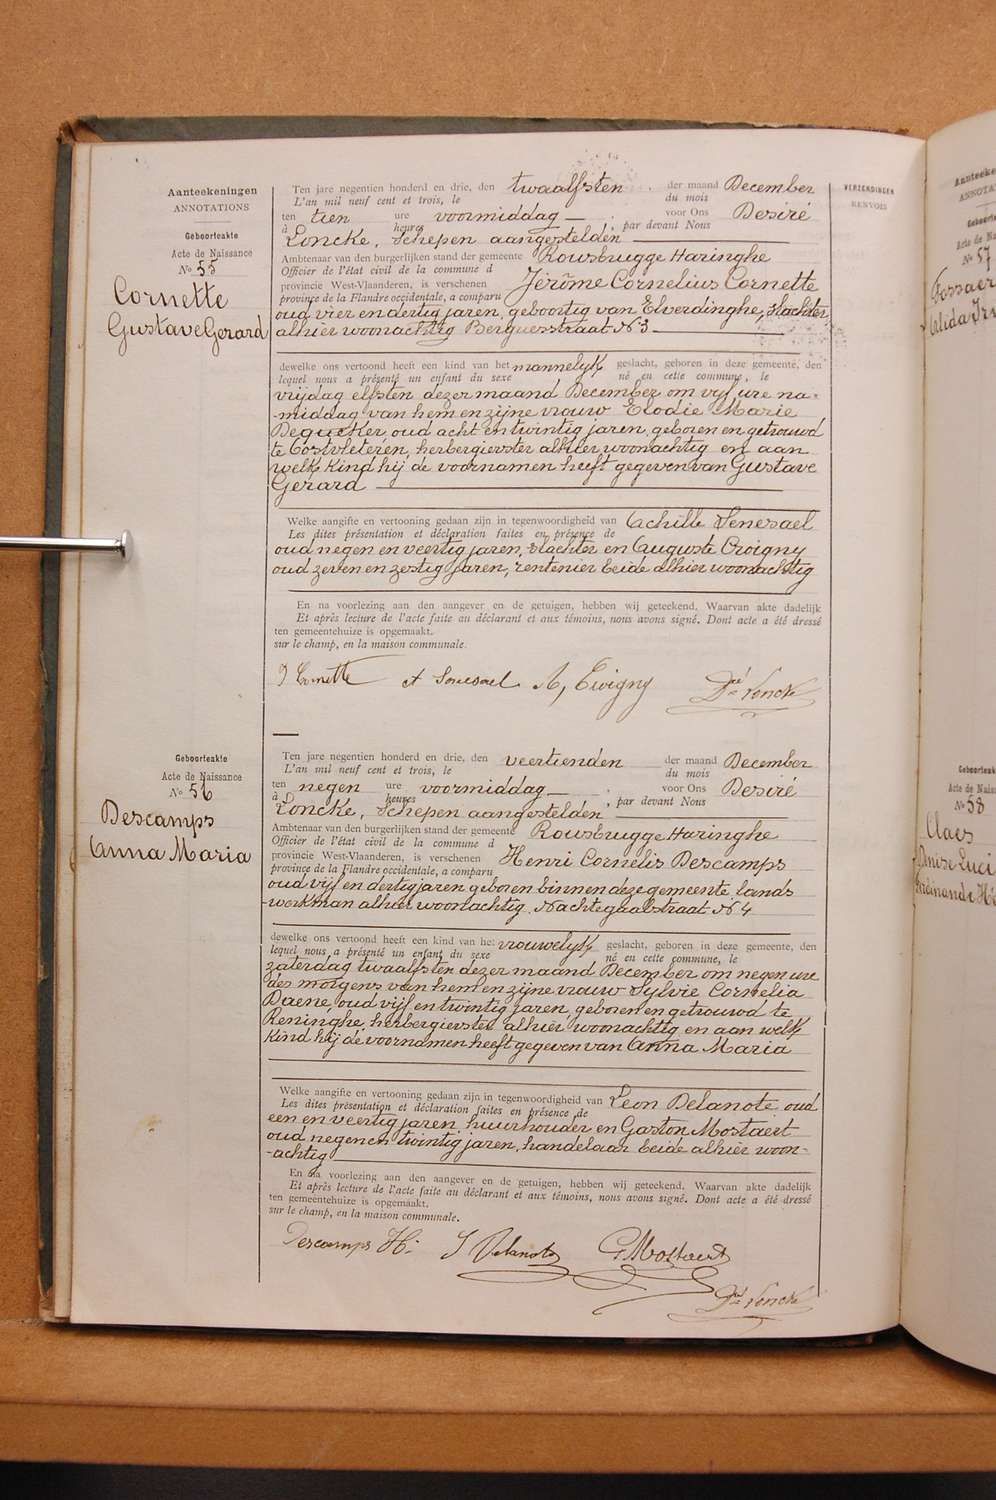 Aanteekeningen
ANNOTATIONS
Geboorteakte
Acte de Naissance
No 55
Cornette
Gustave Gerard
Ten jare negentien honderd en drie, den twaalfsten der maand December
L'an mil neuf cent et trois, le du mois
ten tien ure voormiddag voor Ons Desiré
à heures par devant Nous
Loncke, Schepen aangestelden
Ambtenaar van den burgerlijken stand der gemeente Rousbrugge Haringhe
Officier de l'état civil de la commune d
provincie West-Vlaanderen, is verschenen Jerôme Cornelius Cornette
province de la Flandre occidentale, a comparu
oud vier en dertig jaren, geboortig van Elverdinghe, slachter
alhier woonachtig Berguesstraat N 3
dewelke ons vertoond heeft een kind van het mannelyk geslacht, geboren in deze gemeente, den
lequel nous a présenté un enfant du sexe né en cette commune, le
vrijdag elfsten dezer maand December om vyf ure na-
-middag van hem en zijne vrouw Elodie Marie
Dequeker oud acht en twintig jaren, geboren en getrouwd
te Oostvleteren, herbergierster alhier woonachtig en aan
welk kind hij de voornamen heeft gegeven van Gustave
Gerard
Welke aangifte en vertooning gedaan zijn in tegenwoordigheid van Achille Senesael
Les dites présentation et déclaration faites en présence de
oud negen en veertig jaren, slachter en Auguste
oud zeven en zestig jaren, rentenier beide alhier woonachtig
En na voorlezing aan den aangever en de getuigen, hebben wij geteekend. Waarvan akte dadelijk
Et après lecture de l'acte faite au déclarant et aux témoins, nous avons signé. Dont acte a été dressé
ten gemeentehuize is opgemaakt.
sur le champ, en la maison communale.
J Cornette A Senesael Dré Loncke
Geboorteakte
Acte de Naissance
No 56
Descamps
Anna Maria
Ten jare negentien honderd en drie, den veertienden der maand December
L'an mil neuf cent et trois, le du mois
ten negen ure voormiddag voor Ons Desiré
à heures par devant Nous
Loncke, Schepen aangestelden
Ambtenaar van den burgerlijken stand der gemeente Rousbrugge Haringhe
Officier de l'état civil de la commune d
provincie West-Vlaanderen, is verschenen Henri Cornelis Descamps
province de la Flandre occidentale, a comparu
oud vijf en dertig jaren geboren binnen deze gemeente, lands
-werkman alhier woonachtig, Nachtegaalstraat N 4
dewelke ons vertoond heeft een kind van het vrouwelyk geslacht, geboren in deze gemeente, den
lequel nous a présenté un enfant du sexe né en cette commune, le
zaterdag twaalfsten dezer maand December om negen ure
des morgens van hem en zijne vrouw Sylvie Cornelia
Daene, oud vijf en twintig jaren, geboren en getrouwd te
Reninghe, herbergierster alhier woonachtig en aan welk
kind hij de voornamen heeft gegeven van Anna Maria
Welke aangifte en vertooning gedaan zijn in tegenwoordigheid van Leon Delanote oud
Les dites présentation et déclaration faites en présence de
een en veertig jaren, huurhouder en Gaston Mostaert
oud negen en twintig jaren, handelaar beide alhier woon-
-achtig
En na voorlezing aan den aangever en de getuigen, hebben wij geteekend. Waarvan akte dadelijk
Et après lecture de l'acte faite au déclarant et aux témoins, nous avons signé. Dont acte a été dressé
ten gemeentehuize is opgemaakt.
sur le champ, en la maison communale.
Descamps H. Delanote G Mostaert
Dré Loncke
VERZENDINGEN
RENVOIS
No 57
No 58
Claes